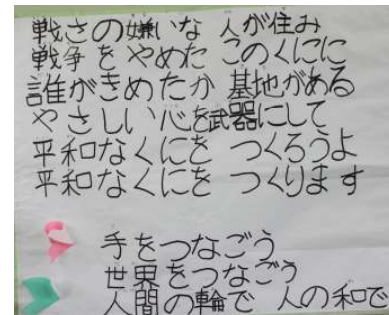 戦さの嫌いな 人が住み
戦争をやめた このくにに
誰がきめたか 基地がある
やさしい心を武器にして
平和なくにを つくろうよ
平和なくにを つくります
手をつなごう
世界をつなごう
人間の輪で 人の和で